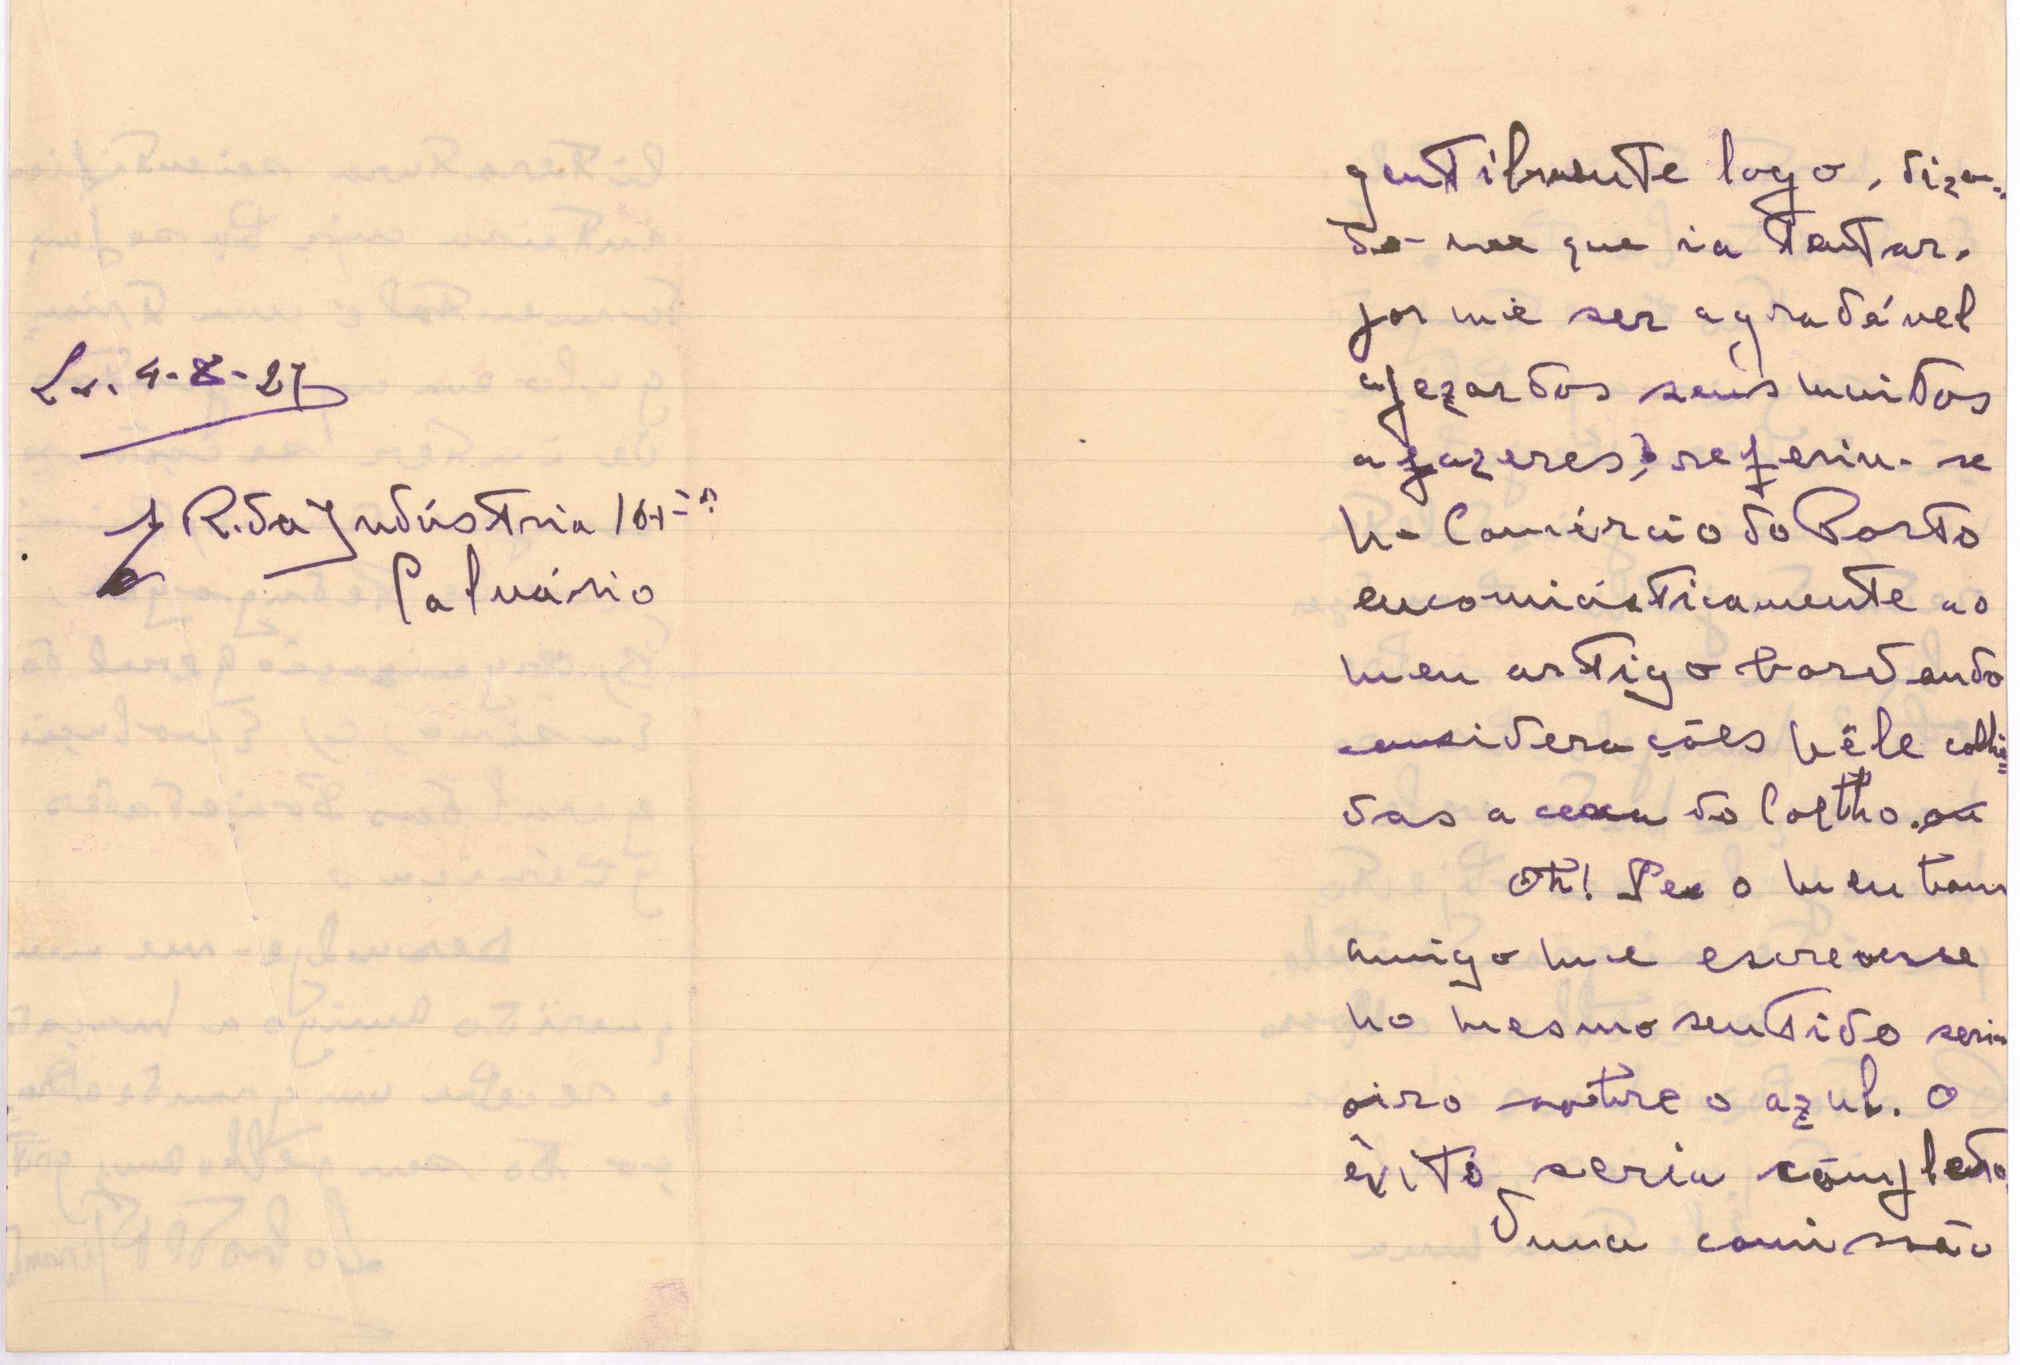 Lx. 4-8-27
R. da Indústria
Calvário
gentilmente logo, dizen=
do-me que ia tentar.
por me ser agradável
apezar dos seus muitos
afazeres, referiu-se
n-Comércio do Porto
encomiásticamente ao
meu artigo bordando
considerações nêle colhi=
das a do Coelho.
Oh! Se o meu bom
amigo me escrevesse
no mesmo sentido seria
oiro sobre o azul. O
êxito seria completo.
Numa comissão